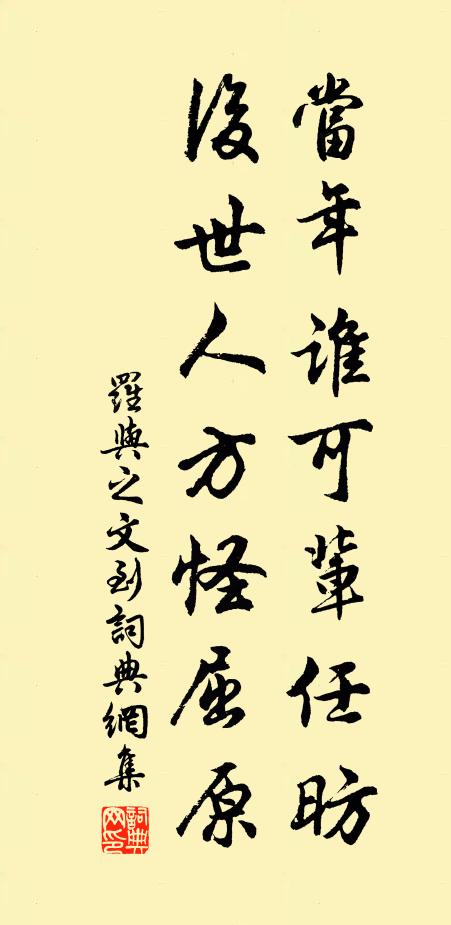 當年誰可輩任昉
後世人方怪屈原
羅與之文到詞典網集
詞典網印